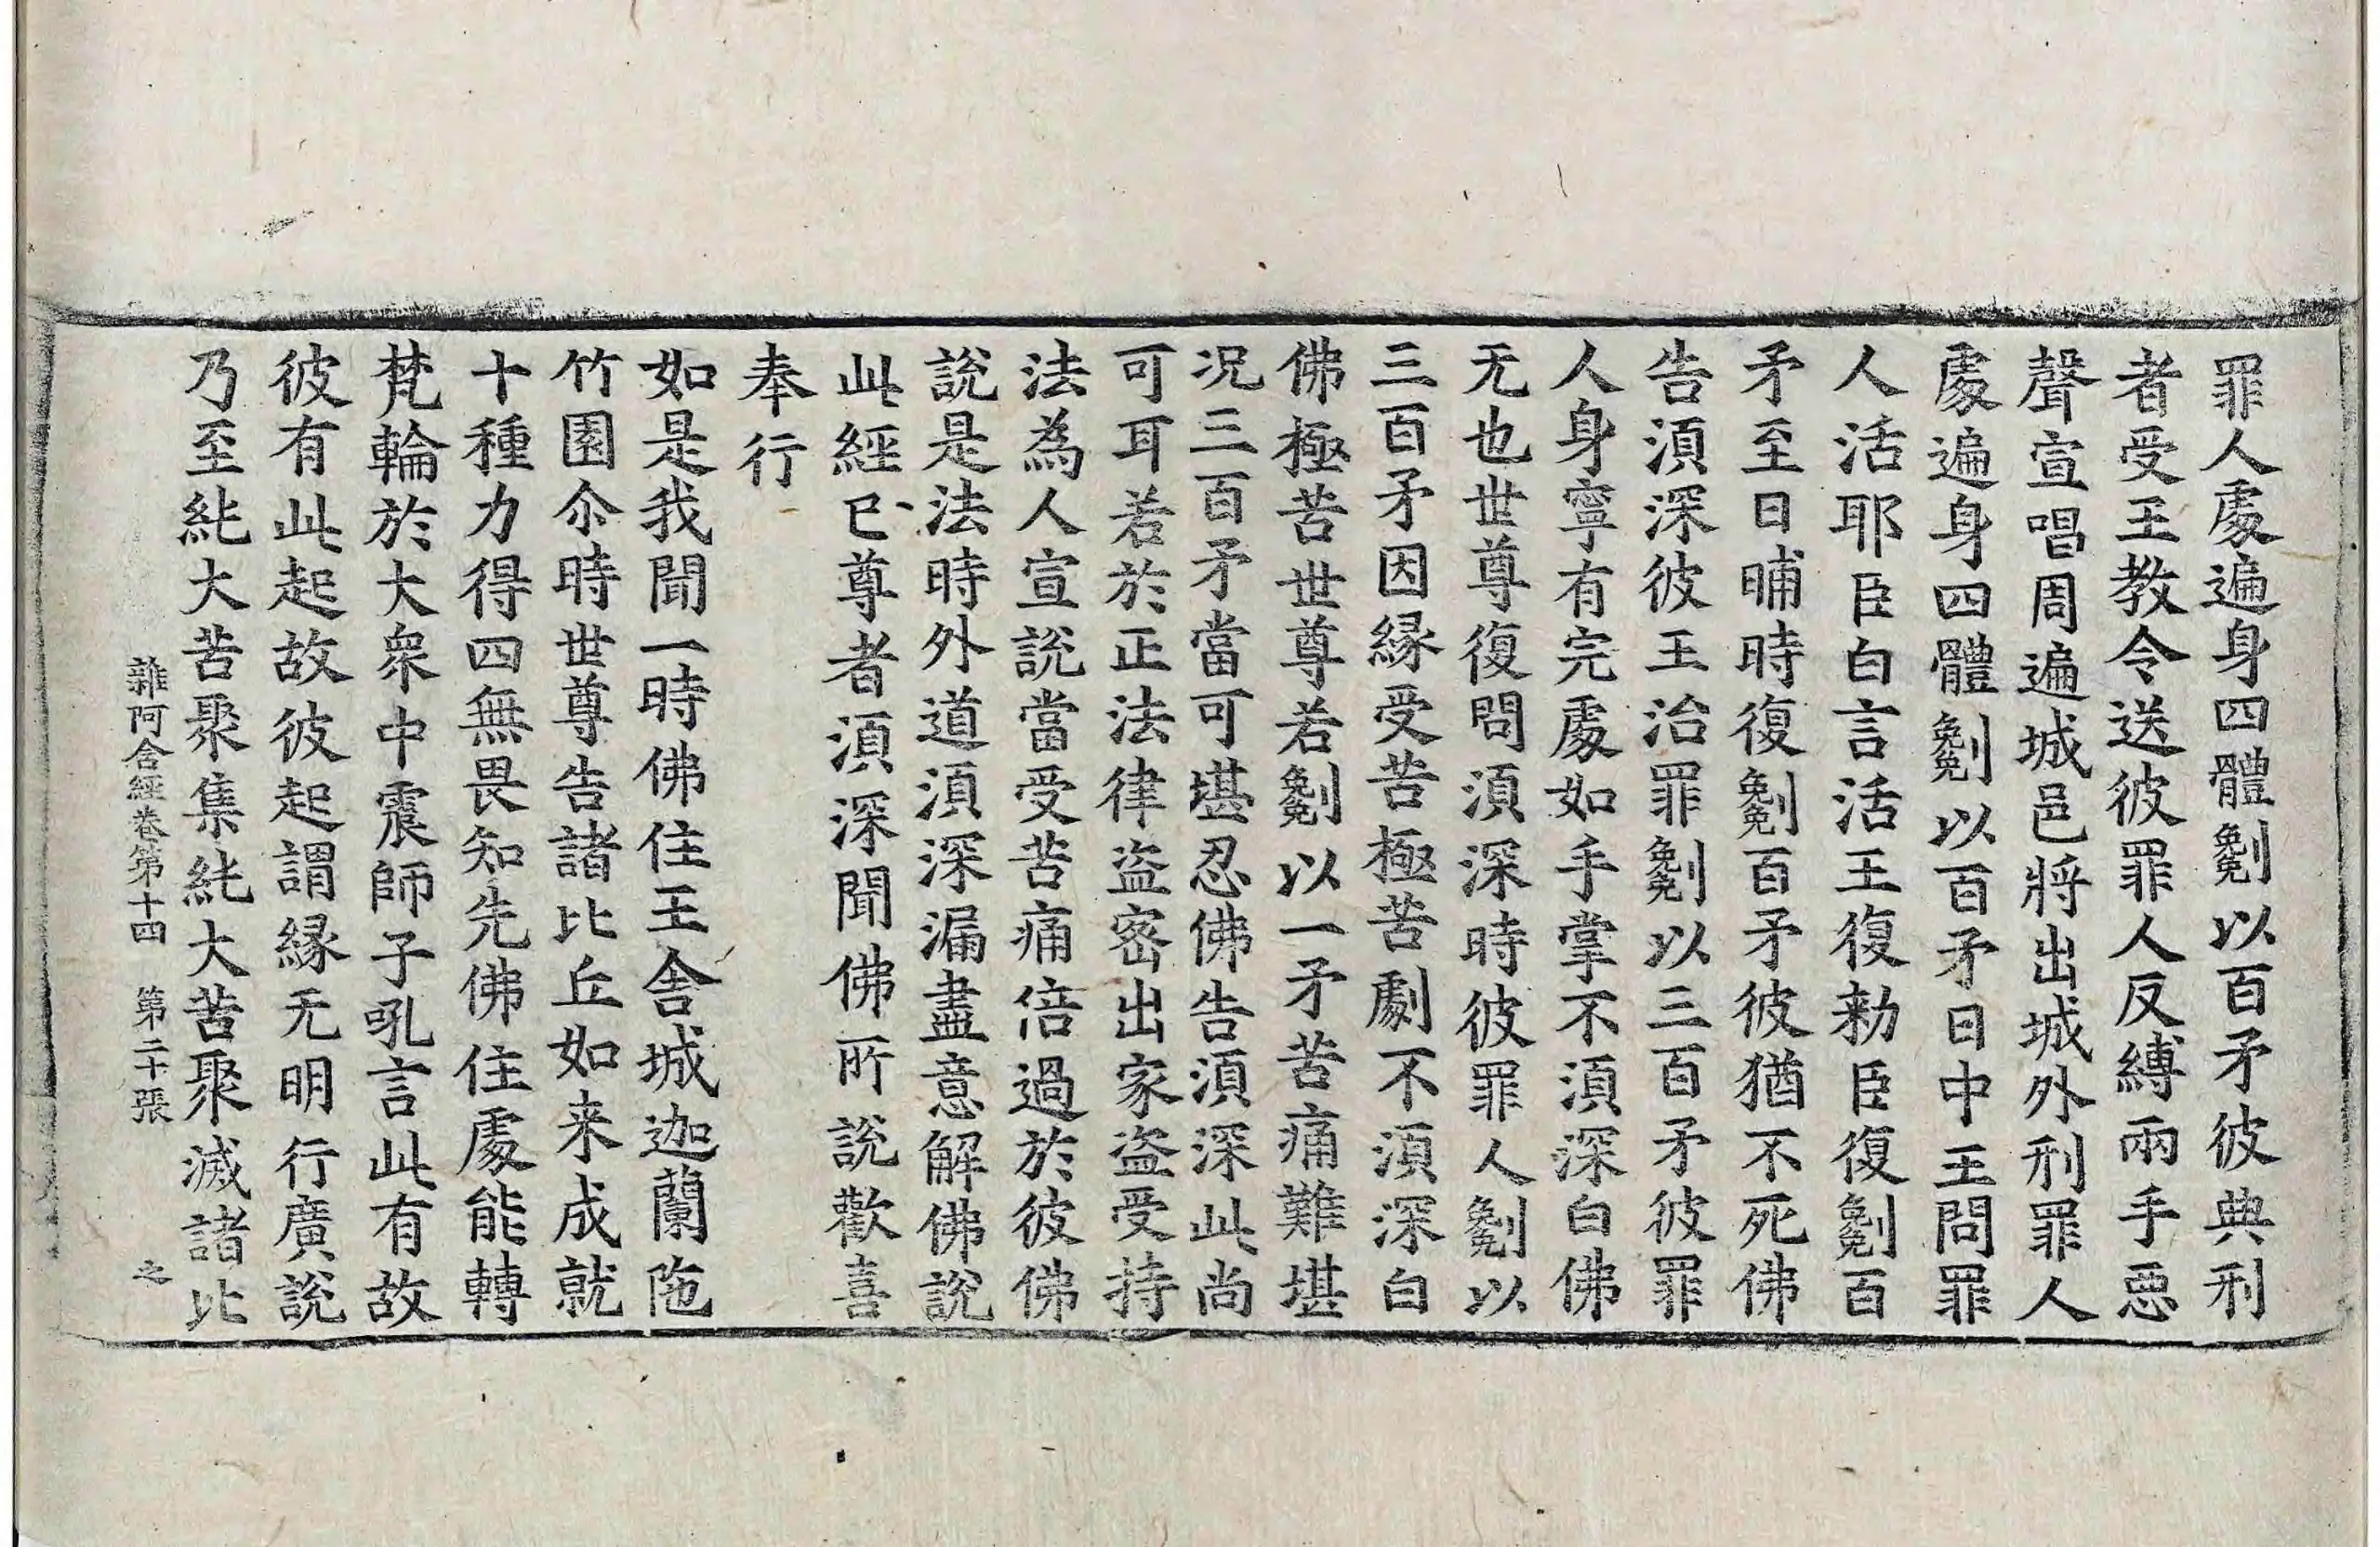 罪人處遍身四體劖以百矛彼典刑
者受王教令送彼罪人反縛兩手惡
聲宣唱周遍城邑將出城外刑罪人
處遍身四體劖以百矛日中王問罪
人活耶臣白言活王復勑臣復劖百
矛至日晡時復劖百矛彼猶不死佛
告湏深彼王治罪劖以三百矛彼罪
人身寧有完處如手掌不湏深白佛
无也世尊復問湏深時彼罪人劖以
三百矛因緣受苦極苦劇不湏深白
佛極苦世尊若劖以一矛苦痛難堪
况三百矛當可堪忍佛告湏深此尚
可耳若於正法律盜密出家盜受持
法為人宣說當受苦痛倍過於彼佛
說是法時外道湏深漏盡意解佛說
此經已尊者湏深聞佛所說歡喜
奉行
如是我聞一時佛住王舍城迦蘭陁
竹園尒時世尊告諸比丘如来成就
十種力得四無畏知先佛住處能轉
梵輪於大衆中震師子吼言此有故
彼有此起故彼起謂緣无明行廣說
乃至純大苦聚集純大苦聚滅諸比
雜阿含經卷第十四 第二十張 之